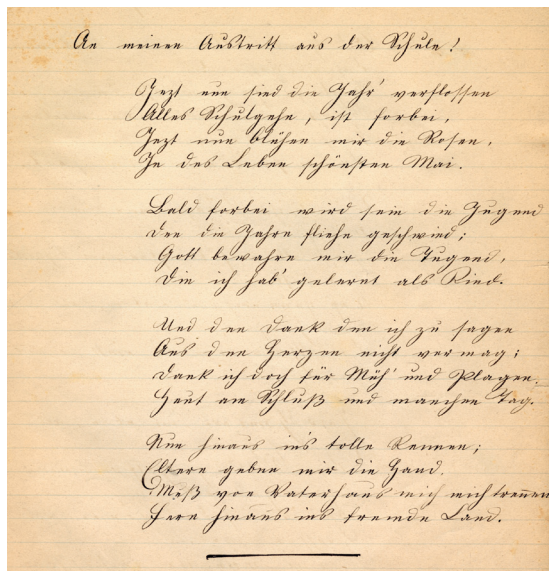 An meinen Austritt aus der Schule!
Jezt nun sind die Jahr' verflossen
Alles Schulgehn, ist forbei,
Jezt nun blühen mir die Rosen,
In des Leben schönsten Mai.
Bald forbei wird sein die Jugend
Den die Jahre fliehn geschwind;
Gott bewahre mir die Tugend,
Die ich hab' gelernt als Kind.
Und den Dank den ich zu sagen
Aus den Herzen nicht vermag;
Dank ich doch für Müh' und Plagen.
Heut am Schluß und manchen Tag.
Nun hinaus ins tolle Rennen;
Eltern geben mir die Hand.
Muß von Vaterhaus mich mich trennen
Fern hinaus ins fremde Land.